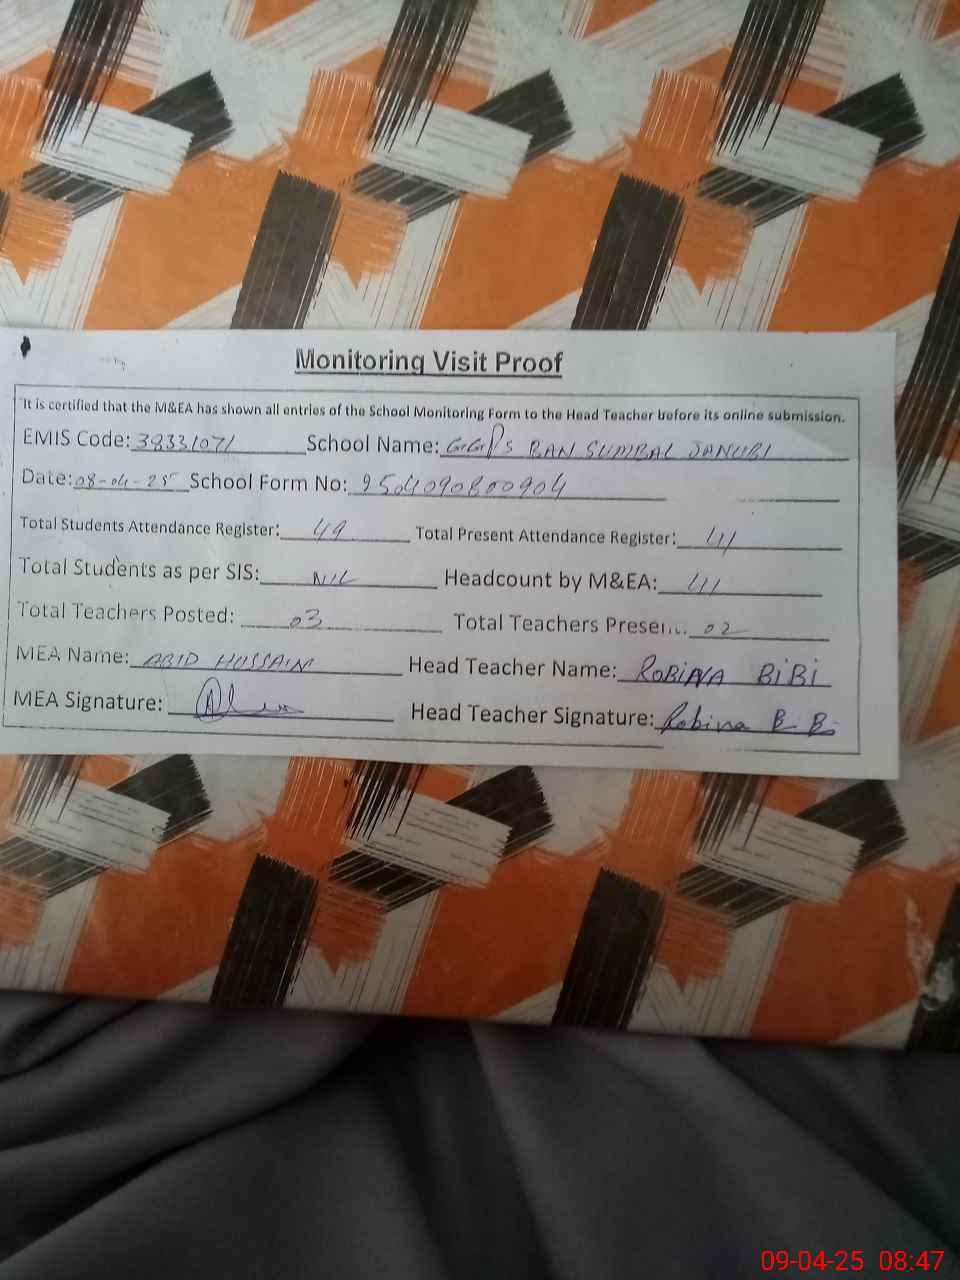 Monitoring Visit Proof
It is certified that the M&EA has shown all entries of the School Monitoring Form to the Head Teacher before its online submission.
EMIS Code: 38331071 School Name: G.G.P/S BAN SUMBAL JANUBI
Date: 08-04-25 School Form No: 9504090800904
Total Students Attendance Register: 49 Total Present Attendance Register: 41
Total Students as per SIS: NIL Headcount by M&EA: 41
Total Teachers Posted: 03 Total Teachers Present: 02
MEA Name: ABID HUSSAIN Head Teacher Name: ROBINA BiBi
MEA Signature: Head Teacher Signature: Robina Bi Bi
09-04-25 08:47